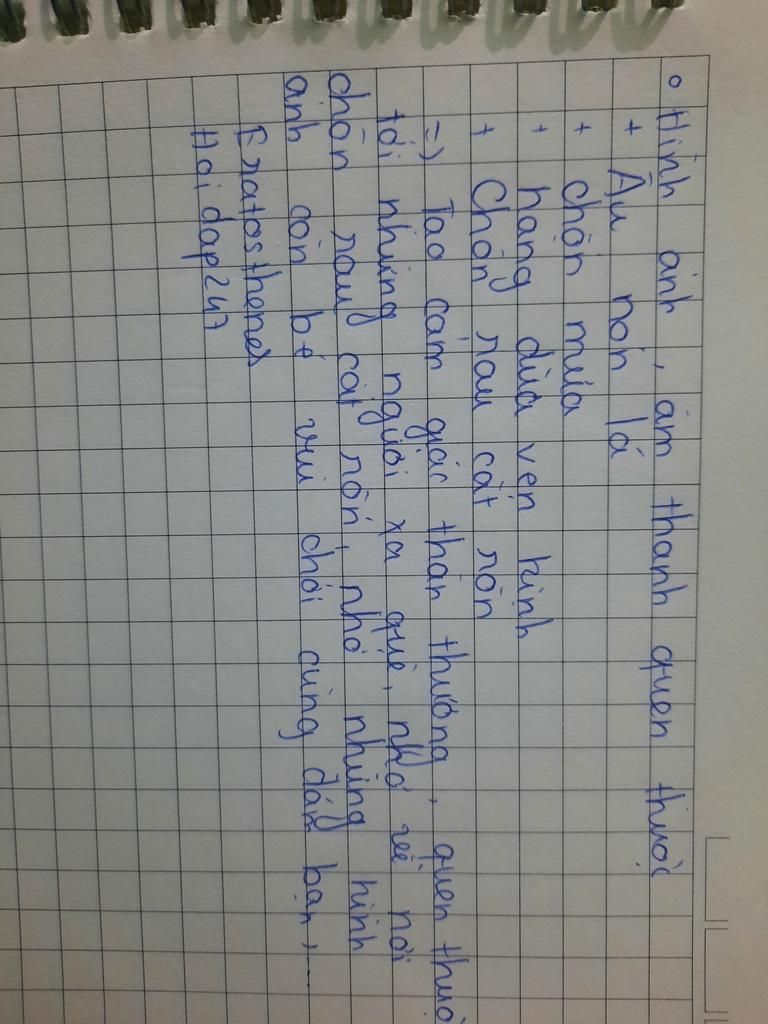 Hình ảnh, âm thanh quen thuộc
+ Âu nón lá
+ Chộn mưa
+ hang dừa vẹn kinh
+ Chôn rau cắt rốn
=) Tạo cảm giác thân thương, quen thuộ
tới những người xa quê, nhớ về nơi
chôn rau cắt rốn, nhớ những hình
ảnh còn bé vui chơi cùng đám bạn,...
Eratosthenes
Hoidap247